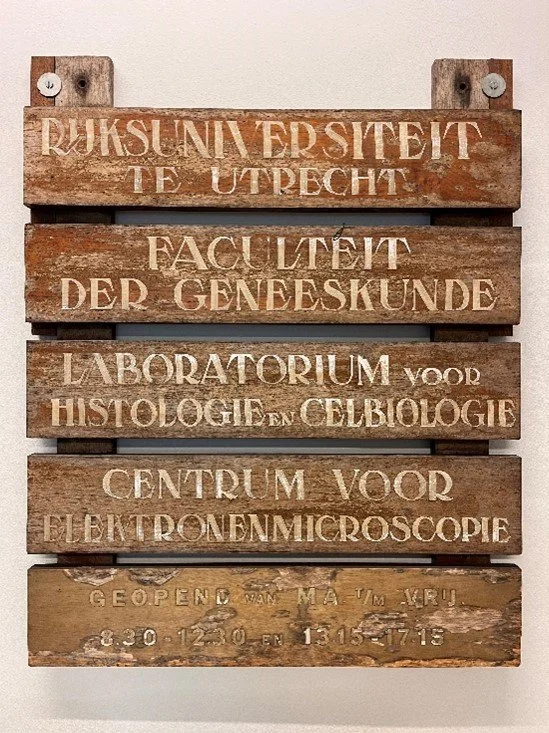 RIJKSUNIVERSITEIT
TE UTRECHT
FACULTEIT
DER GENEESKUNDE
LABORATORIUM VOOR
HISTOLOGIE EN CELBIOLOGIE
CENTRUM VOOR
ELEKTRONENMICROSCOPIE
GEOPEND VAN MA. T/M VRIJ.
8.30-12.30 EN 13.15-17.15